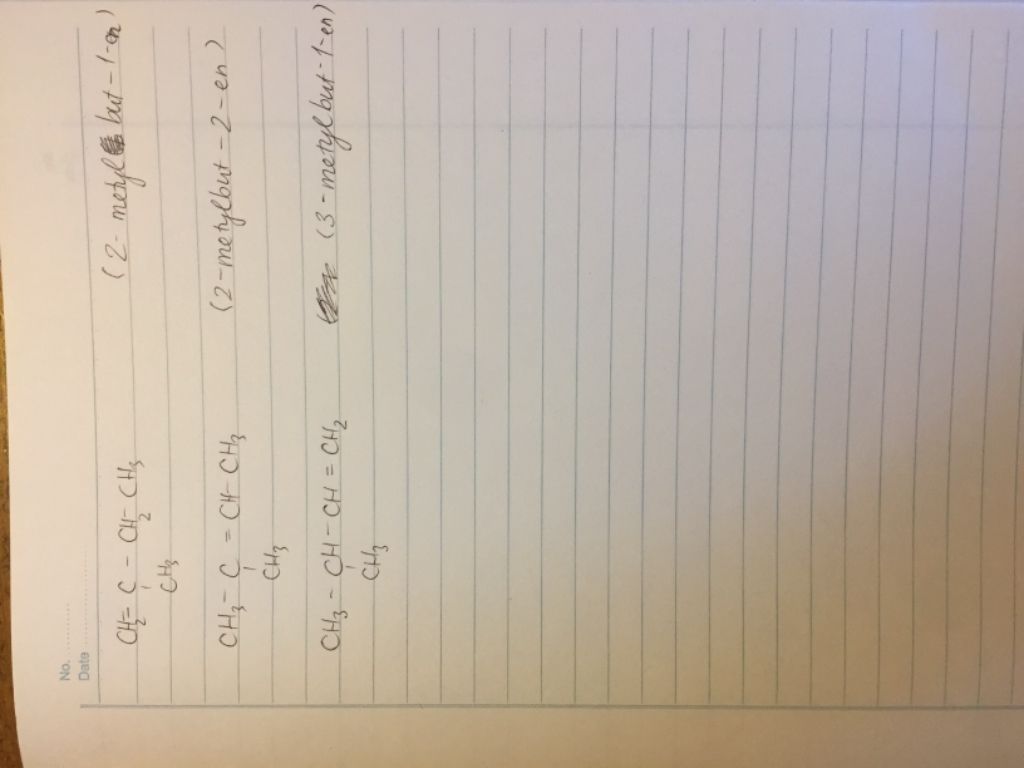 No. ............
Date ............
CH2 = C - CH2 - CH3 (2 - metyl but - 1 - en)
CH3
CH3 - C = CH - CH3 (2 - metylbut - 2 - en)
CH3
CH3 - CH - CH = CH2 (3 - metylbut - 1 - en)
CH3